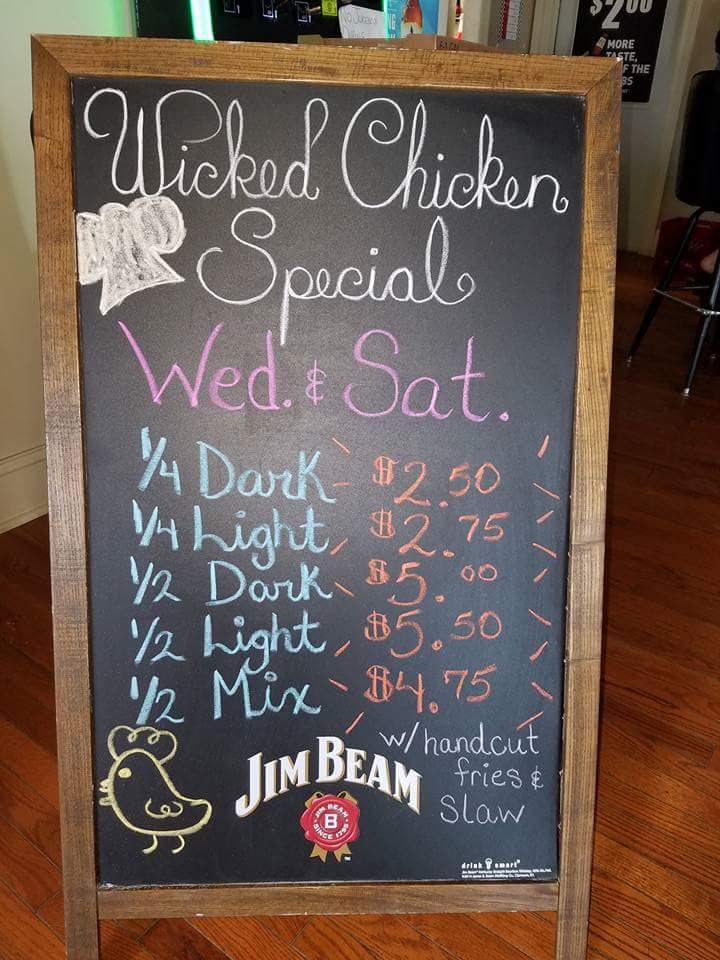 No
$2.00
MORE
TASTE,
OF THE
Wicked Chicken
Special
Wed. & Sat.
1/4 Dark $2.50
1/4 Light $2.75
1/2 Dark $5.00
1/2 Light $5.50
1/2 Mix $4.75
w/ handcut
fries &
Slaw
JIM BEAM
JIM BEAM
B
SINCE 1795
drink smart